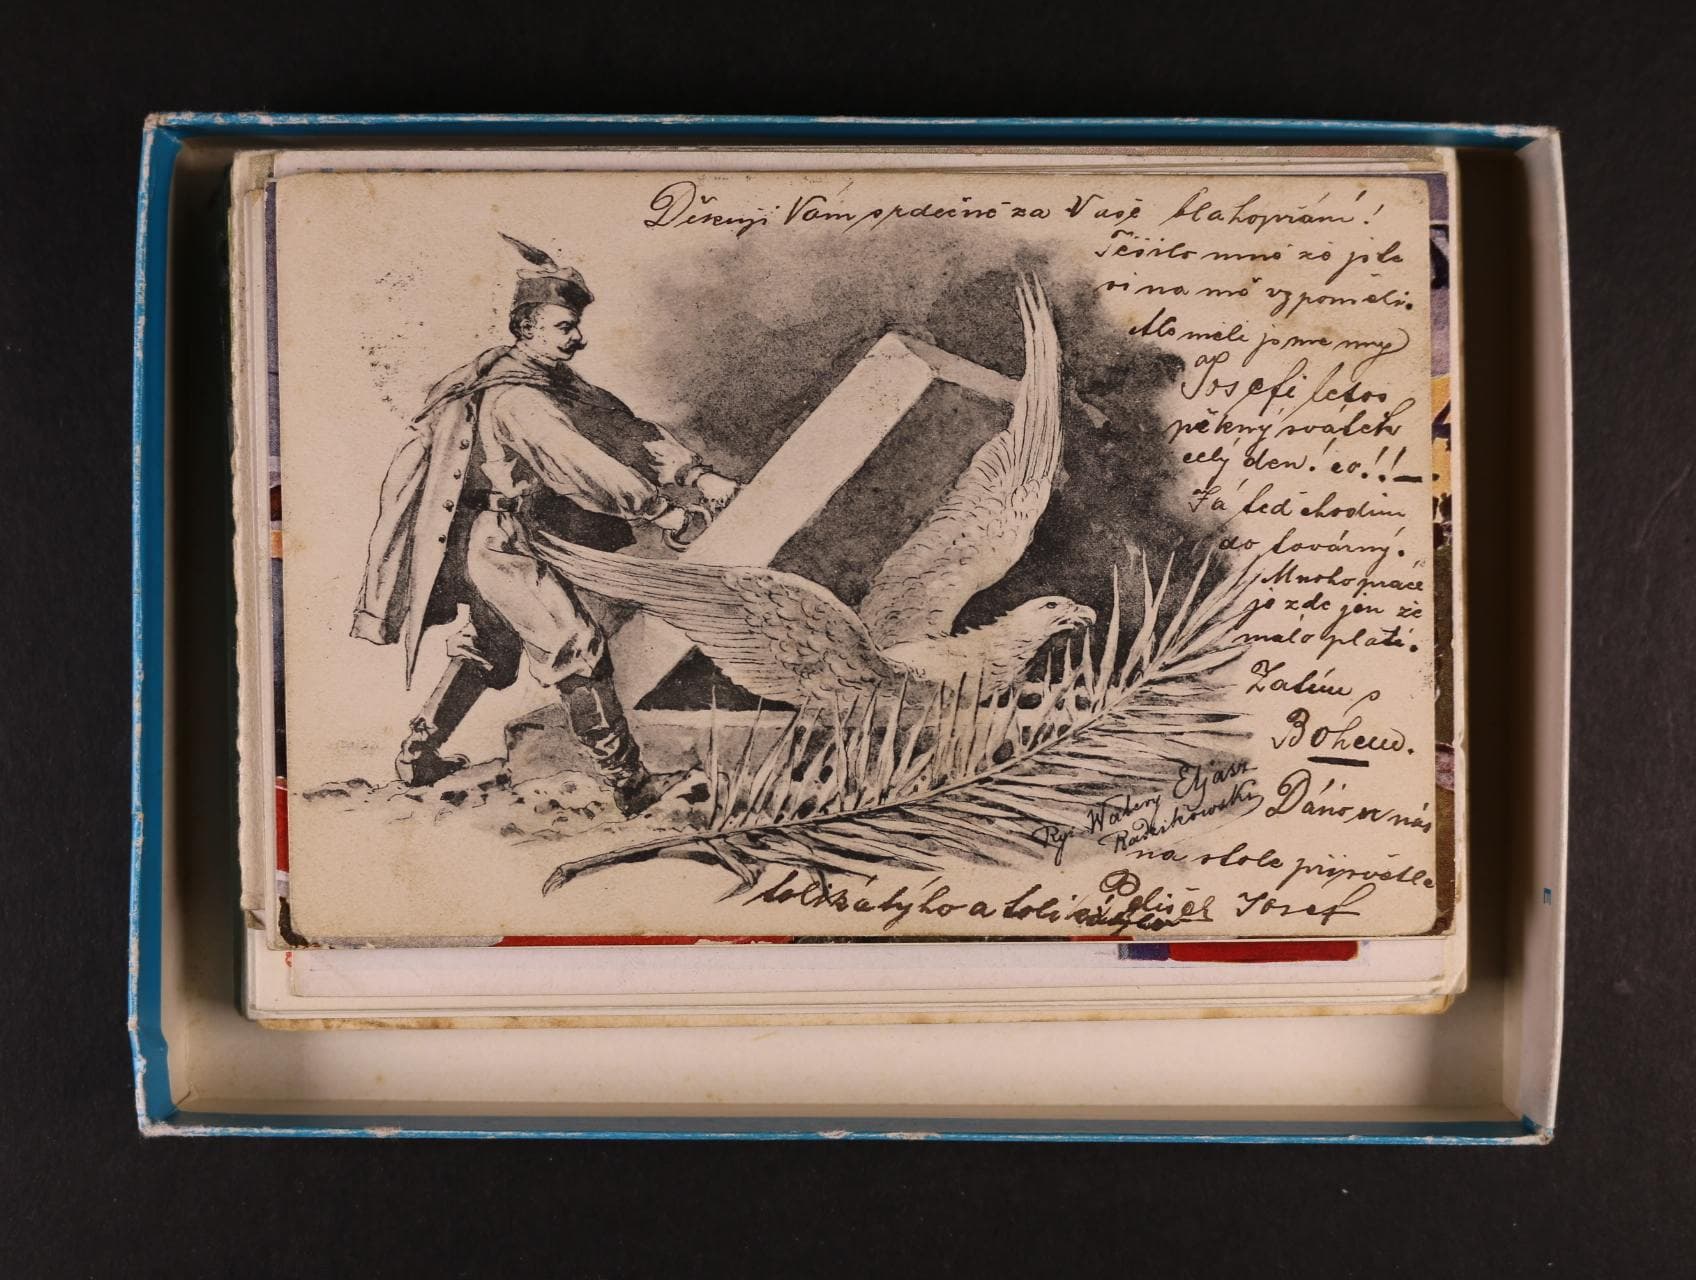 Děkuji Vám srdečně za Vaše blahopřání!
Těšilo mně že jste
si na mě vzpoměli.
Ale měli jsme my
Josefi letos
pěkný svátek
celý den! co!!—
Já teď chodím
do továrny.
Mnoho práce
je zde jen že
málo platí.
Zatím s
Bohem.
Dáno u nás
na stole při světle
tolikátýho a toli
Josef
Rys. Walery Eljasz
Radzikowski